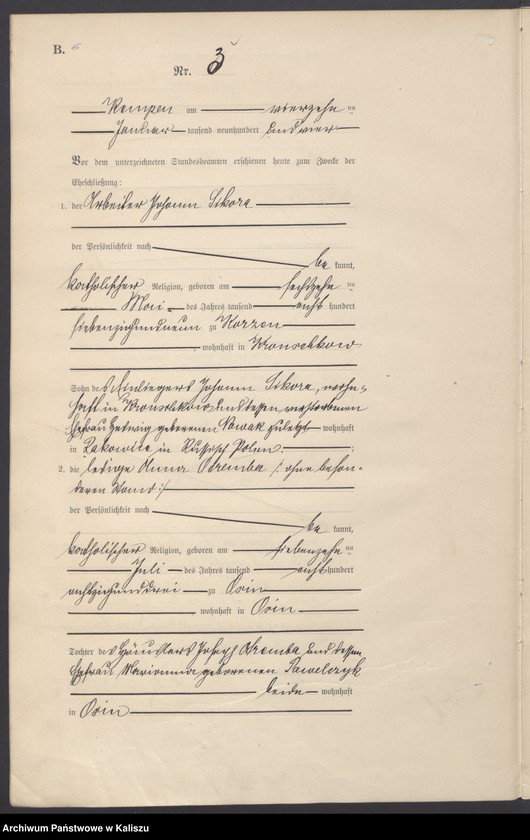 B. 6
Nr. 3
Kempen am vierzehn ten
Januar tausend neunhundert und vier
Vor dem unterzeichneten Standesbeamten erschienen heute zum Zwecke der
Eheschließung:
1. der Arbeiter Johann Sikora
der Persönlichkeit nach
be kannt,
katholischer Religion, geboren am sechszehn ten
Mai des Jahres tausend acht hundert
siebenzig und neun zu Korzen
, wohnhaft in Kronschkow
Sohn des Einliegers Johann Sikora, wohn-
haft in Kronschkow und dessen verstorbenen
Ehefrau Hedwig geborenen Nowak zuletzt wohnhaft
in Rakowice in Russisch Polen.
2. die ledige Anna Odremba /: ohne beson-
deren Stand :/
der Persönlichkeit nach
be kannt,
katholischer Religion, geboren am siebenzehn ten
Juli des Jahres tausend acht hundert
achtzig und drei zu Osin
, wohnhaft in Osin
Tochter des Häuslers Joseph Odremba und dessen
Ehefrau Marianna geborenen Pawelczyk
beide wohnhaft
in Osin
Archiwum Państwowe w Kaliszu